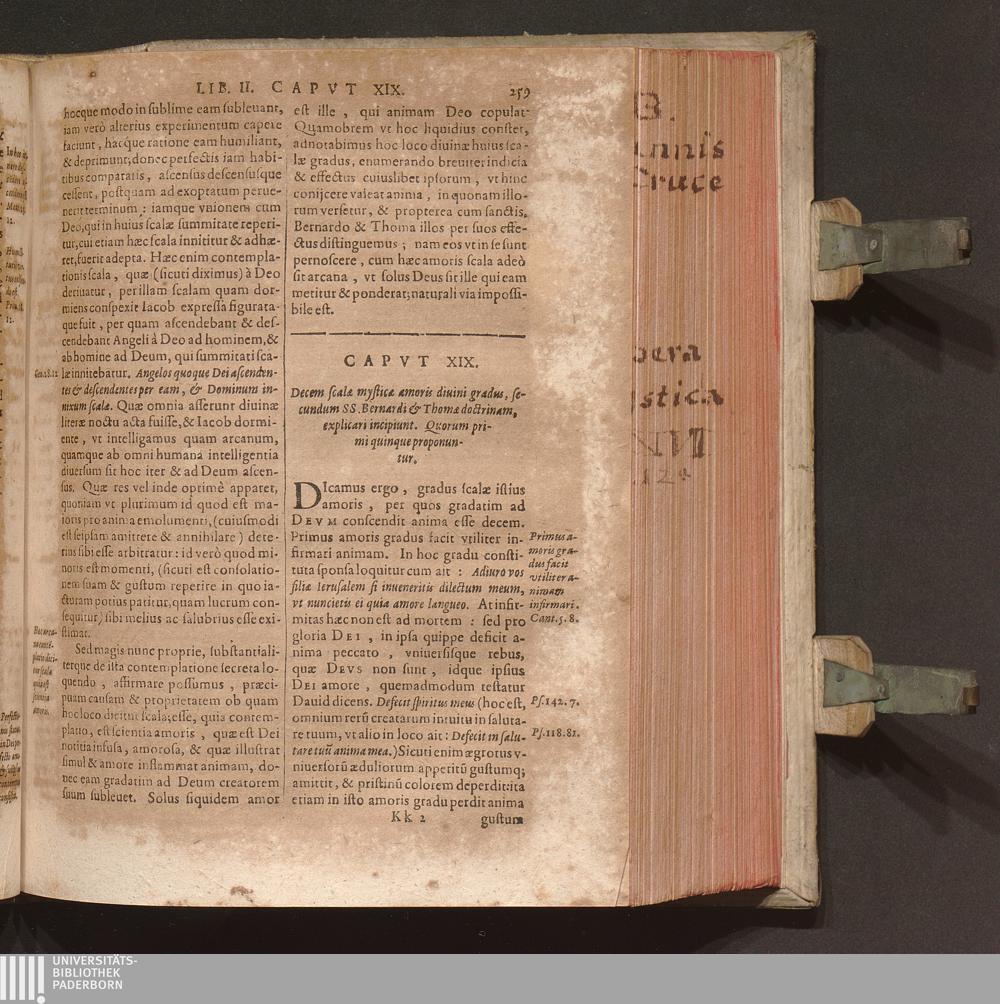 LIB. II. CAPVT XIX. 259
hocque modo in sublime eam subleuant,
iam verò alterius experimentum capere
faciunt, hacque ratione eam humiliant,
& deprimunt; donec perfectis iam habi-
tibus comparatis, ascensus descensusque
cessent, postquam ad exoptatum perue-
nerit terminum: iamque vnionem cum
Deo, qui in huius scalæ summitate reperi-
tur, cui etiam hæc scala innititur & adhæ-
ret, fuerit adepta. Hæc enim contempla-
tionis scala, quæ (sicuti diximus) à Deo
deriuatur, per illam scalam quam dor-
miens conspexit Iacob expressa figurata-
que fuit, per quam ascendebant & des-
cendebant Angeli à Deo ad hominem, &
ab homine ad Deum, qui summitati sca-
læ innitebatur. Angelos quoque Dei ascenden-
tes & descendentes per eam, & Dominum in-
nixum scalæ. Quæ omnia asserunt diuinæ
literæ noctu acta fuisse, & Iacob dormi-
ente, vt intelligamus quam arcanum,
quamque ab omni humana intelligentia
diuersum sit hoc iter & ad Deum ascen-
sus. Quæ res vel inde optimè apparet,
quoniam vt plurimum id quod est ma-
ioris pro anima emolumenti, (cuiusmodi
est seipsam amittere & annihilare) dete-
rius sibi esse arbitratur: id verò quod mi-
noris est momenti, (sicuti est consolatio-
nem suam & gustum reperire in quo ia-
cturam potius patitur, quam lucrum con-
sequitur) sibi melius ac salubrius esse exi-
stimat.
Sed magis nunc proprie, substantiali-
terque de ista contemplatione secreta lo-
quendo, affirmare possumus, præci-
puam causam & proprietatem ob quam
hoc loco dicitur scala; esse, quia contem-
platio, est scientia amoris, quæ est Dei
notitia infusa, amorosa, & quæ illustrat
simul & amore inflammat animam, do-
nec eam gradatim ad Deum creatorem
suum subleuet. Solus siquidem amor
Gen. 28. 12
est ille, qui animam Deo copulat.
Quamobrem vt hoc liquidius constet,
adnotabimus hoc loco diuinæ huius sca-
læ gradus, enumerando breuiter indicia
& effectus cuiuslibet ipsorum, vt hinc
conijcere valeat anima, in quonam illo-
rum versetur, & propterea cum sanctis.
Bernardo & Thoma illos per suos effe-
ctus distinguemus; nam eos vt in se sunt
pernoscere, cum hæc amoris scala adeò
sit arcana, vt solus Deus sit ille qui eam
metitur & ponderat; naturali via impossi-
bile est.
CAPVT XIX.
Decem scalæ mysticæ amoris diuini gradus, se-
cundum SS. Bernardi & Thomæ doctrinam,
explicari incipiunt. Quorum pri-
mi quinque proponun-
tur.
DIcamus ergo, gradus scalæ istius
amoris, per quos gradatim ad
DEVM conscendit anima esse decem.
Primus amoris gradus facit vtiliter in-
firmari animam. In hoc gradu consti-
tuta sponsa loquitur cum ait: Adiuro vos
filiæ Ierusalem si inueneritis dilectum meum,
vt nuncietis ei quia amore langueo. At infir-
mitas hæc non est ad mortem: sed pro
gloria DEI, in ipsa quippe deficit a-
nima peccato, vniuersisque rebus,
quæ DEVS non sunt, idque ipsius
DEI amore, quemadmodum testatur
Dauid dicens. Defecit spiritus meus (hoc est,
omnium rerū creatarum intuitu in saluta-
re tuum, vt alio in loco ait: Defecit in salu-
tare tuū anima mea.) Sicuti enim ægrotus v-
niuersorū æduliorum appetitū gustumq;
amittit, & pristinū colorem deperdit: ita
etiam in isto amoris gradu perdit anima
Kk 2 gustum
Primus a-
moris gra-
dus facit
vtiliter a-
nimam
infirmari.
Cant. 5. 8.
Ps. 142. 7.
Ps. 118. 81.
B.
annis
Cruce
pera
stica
UNIVERSITÄTS-
BIBLIOTHEK
PADERBORN